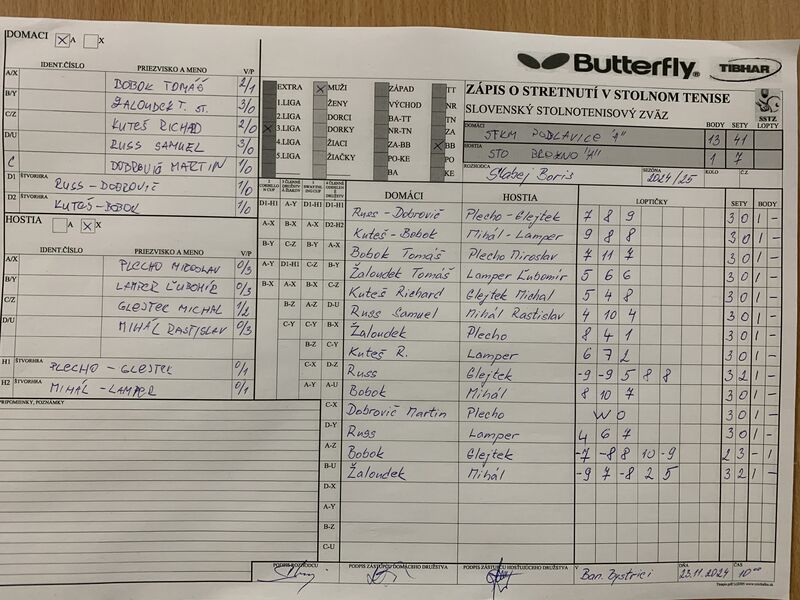 DOMACI A X
IDENT.ČÍSLO PRIEZVISKO A MENO V/P
A/X BOBOK TOMÁŠ 2/1
B/Y ŽALOUDEK T. ST. 3/0
C/Z KUTEŠ RICHARD 2/0
D/U RUSS SAMUEL 3/0
C DOBROVIČ MARTIN 1/0
D1 ŠTVORHRA RUSS - DOBROVIČ 1/0
D2 ŠTVORHRA KUTEŠ - BOBOK 1/0
HOSTIA A X
IDENT.ČÍSLO PRIEZVISKO A MENO V/P
A/X PLECHO MIROSLAV 0/3
B/Y LAMPER ĽUBOMÍR 0/3
C/Z GLEJTEK MICHAL 1/2
D/U MIHÁL RASTISLAV 0/3
H1 ŠTVORHRA PLECHO - GLEJTEK 0/1
H2 ŠTVORHRA MIHÁL - LAMPER 0/1
PRIPOMIENKY, POZNÁMKY
Butterfly TIBHAR
EXTRA MUŽI ZÁPAD TT
1.LIGA ŽENY VÝCHOD NR
2.LIGA DORCI BA-TT TN
3.LIGA DORKY NR-TN ZA
4.LIGA ŽIACI ZA-BB BB
5.LIGA ŽIAČKY PO-KE PO
BA KE
ZÁPIS O STRETNUTÍ V STOLNOM TENISE
SLOVENSKÝ STOLNOTENISOVÝ ZVÄZ
SSTZ
BODY SETY LOPTY
DOMÁCI ŠFKM PODLAVICE "A" 13 41
HOSTIA STO BREZNO "A" 1 7
ROZHODCA Slabej Boris SEZÓNA 2024/25 KOLO Č.Z.
DOMÁCI HOSTIA LOPTIČKY SETY BODY
D1-H1 A-Y D1-H1 D1-H1 Russ - Dobrovič Plecho - Glejtek 7 8 9 3 0 1 -
A-X B-X A-X D2-H2 Kuteš - Bobok Mihál - Lamper 9 8 8 3 0 1 -
B-Y C-Z B-Y A-X Bobok Tomáš Plecho Miroslav 7 11 7 3 0 1 -
A-Y D1-H1 C-Z B-Y Žaloudek Tomáš Lamper Ľubomír 5 6 6 3 0 1 -
B-X A-X B-X C-Z Kuteš Richard Glejtek Michal 5 4 8 3 0 1 -
B-Z A-Z D-U Russ Samuel Mihál Rastislav 4 10 4 3 0 1 -
C-Y C-Y B-X Žaloudek Plecho 8 4 1 3 0 1 -
B-Z C-Y Kuteš R. Lamper 6 7 2 3 0 1 -
C-X D-Z Russ Glejtek -9 -9 5 8 8 3 2 1 -
A-Y A-U Bobok Mihál 8 10 7 3 0 1 -
C-X Dobrovič Martin Plecho WO 3 0 1 -
D-Y Russ Lamper 4 6 7 3 0 1 -
A-Z Bobok Glejtek -7 -8 8 10 -9 2 3 - 1
B-U Žaloudek Mihál -9 7 -8 2 5 3 2 1 -
D-X
A-Y
B-Z
C-U
PODPIS ROZHODCU PODPIS ZÁSTUPCU DOMÁCEHO DRUŽSTVA PODPIS ZÁSTUPCU HOSŤUJÚCEHO DRUŽSTVA V Ban. Bystrici DŇA 23.11.2024 ČAS 10ºº